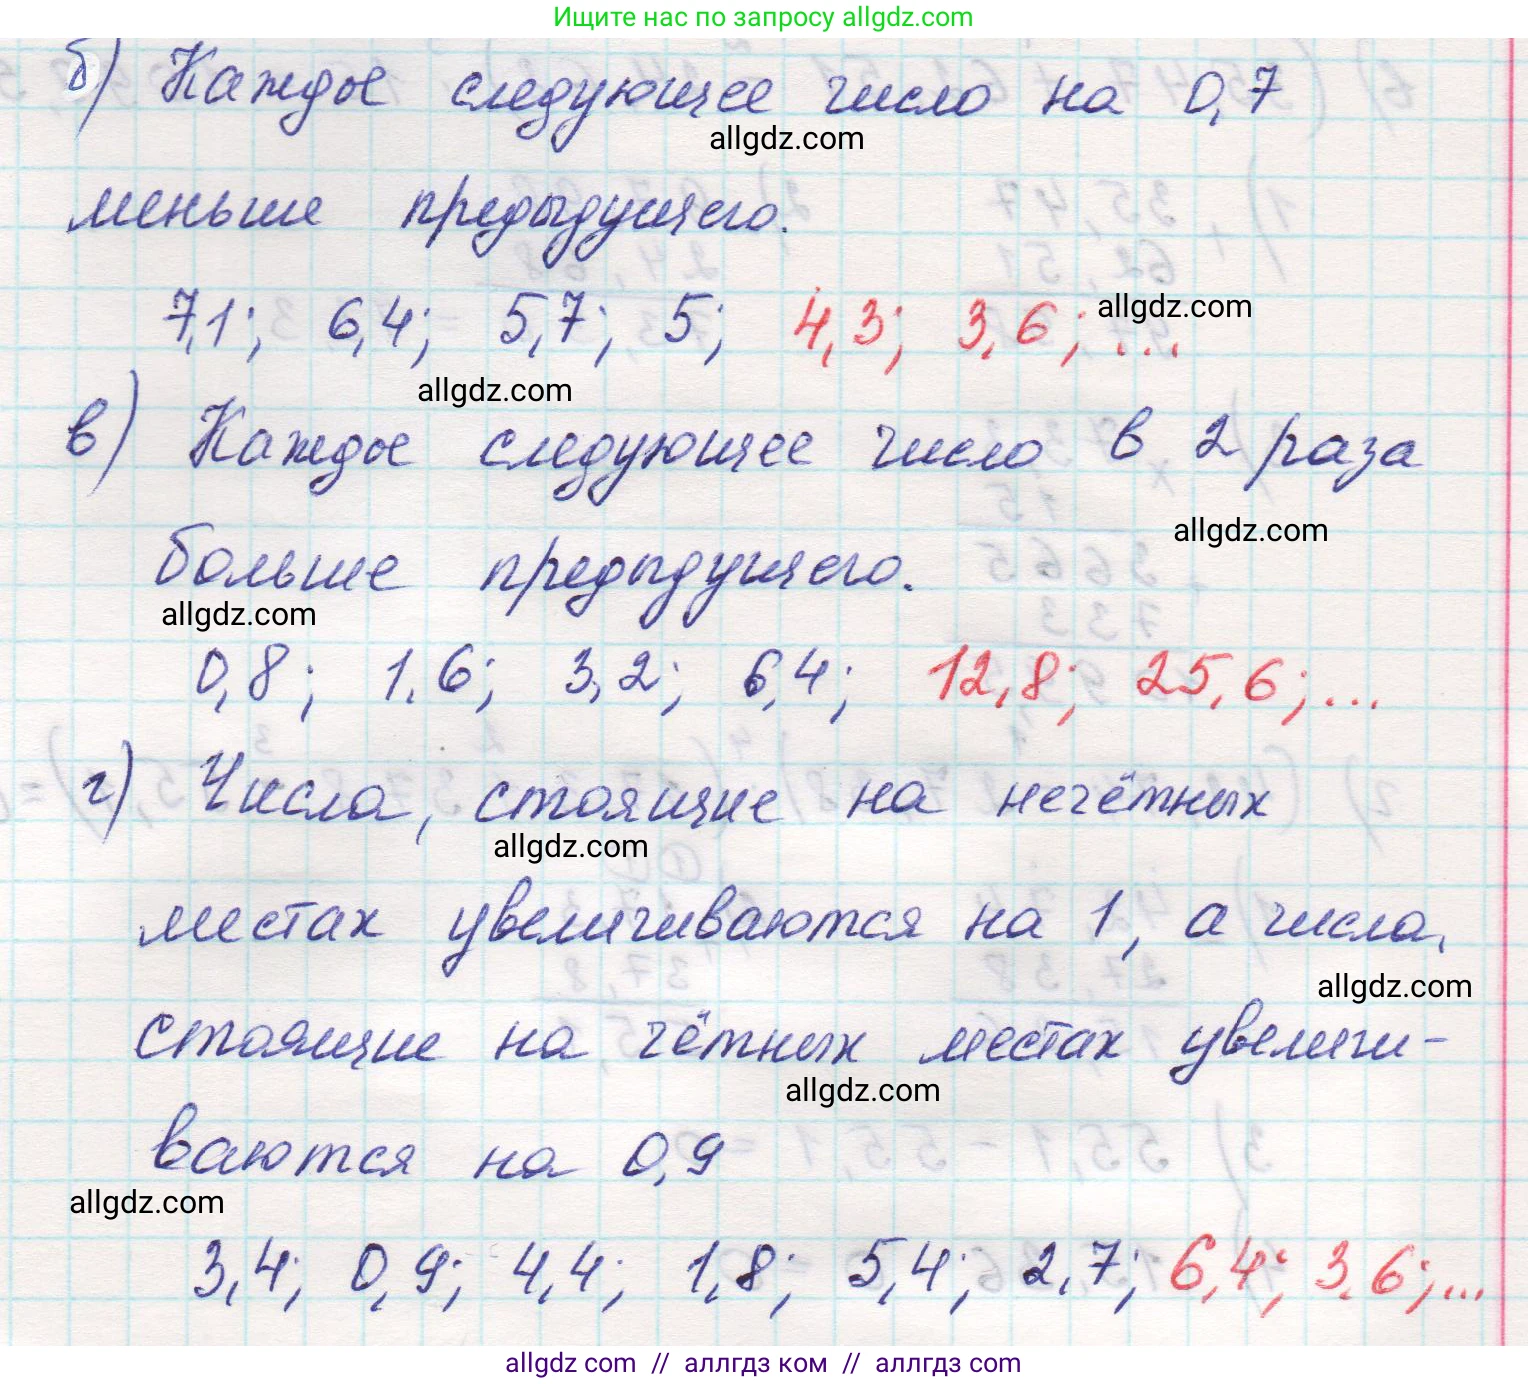 Ищите нас по запросу allgdz.com
б) Каждое следующее число на 0,7
allgdz.com
меньше предыдущего.
7,1; 6,4; 5,7; 5; 4,3; 3,6; ...
allgdz.com
allgdz.com
в) Каждое следующее число в 2 раза
allgdz.com
больше предыдущего.
allgdz.com
0,8; 1,6; 3,2; 6,4; 12,8; 25,6; ...
г) Числа, стоящие на нечётных
allgdz.com
местах увеличиваются на 1, а числа,
allgdz.com
стоящие на чётных местах увеличи-
allgdz.com
ваются на 0,9
allgdz.com
3,4; 0,9; 4,4; 1,8; 5,4; 2,7; 6,4; 3,6; ...
allgdz.com // аллгдз ком // аллгдз com